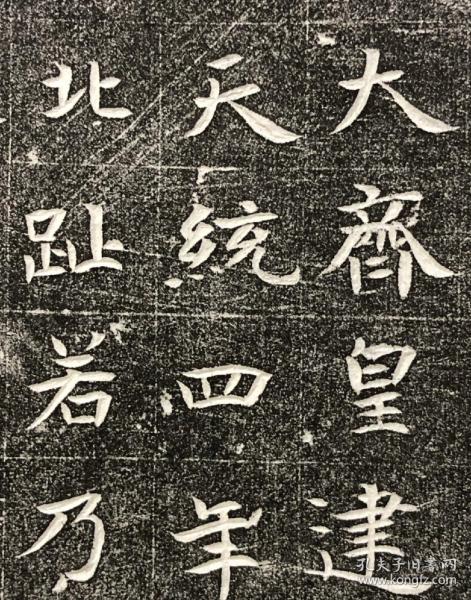 大齊皇建
天統四年
北趾若乃
孔夫子旧书网
www.kongfz.com